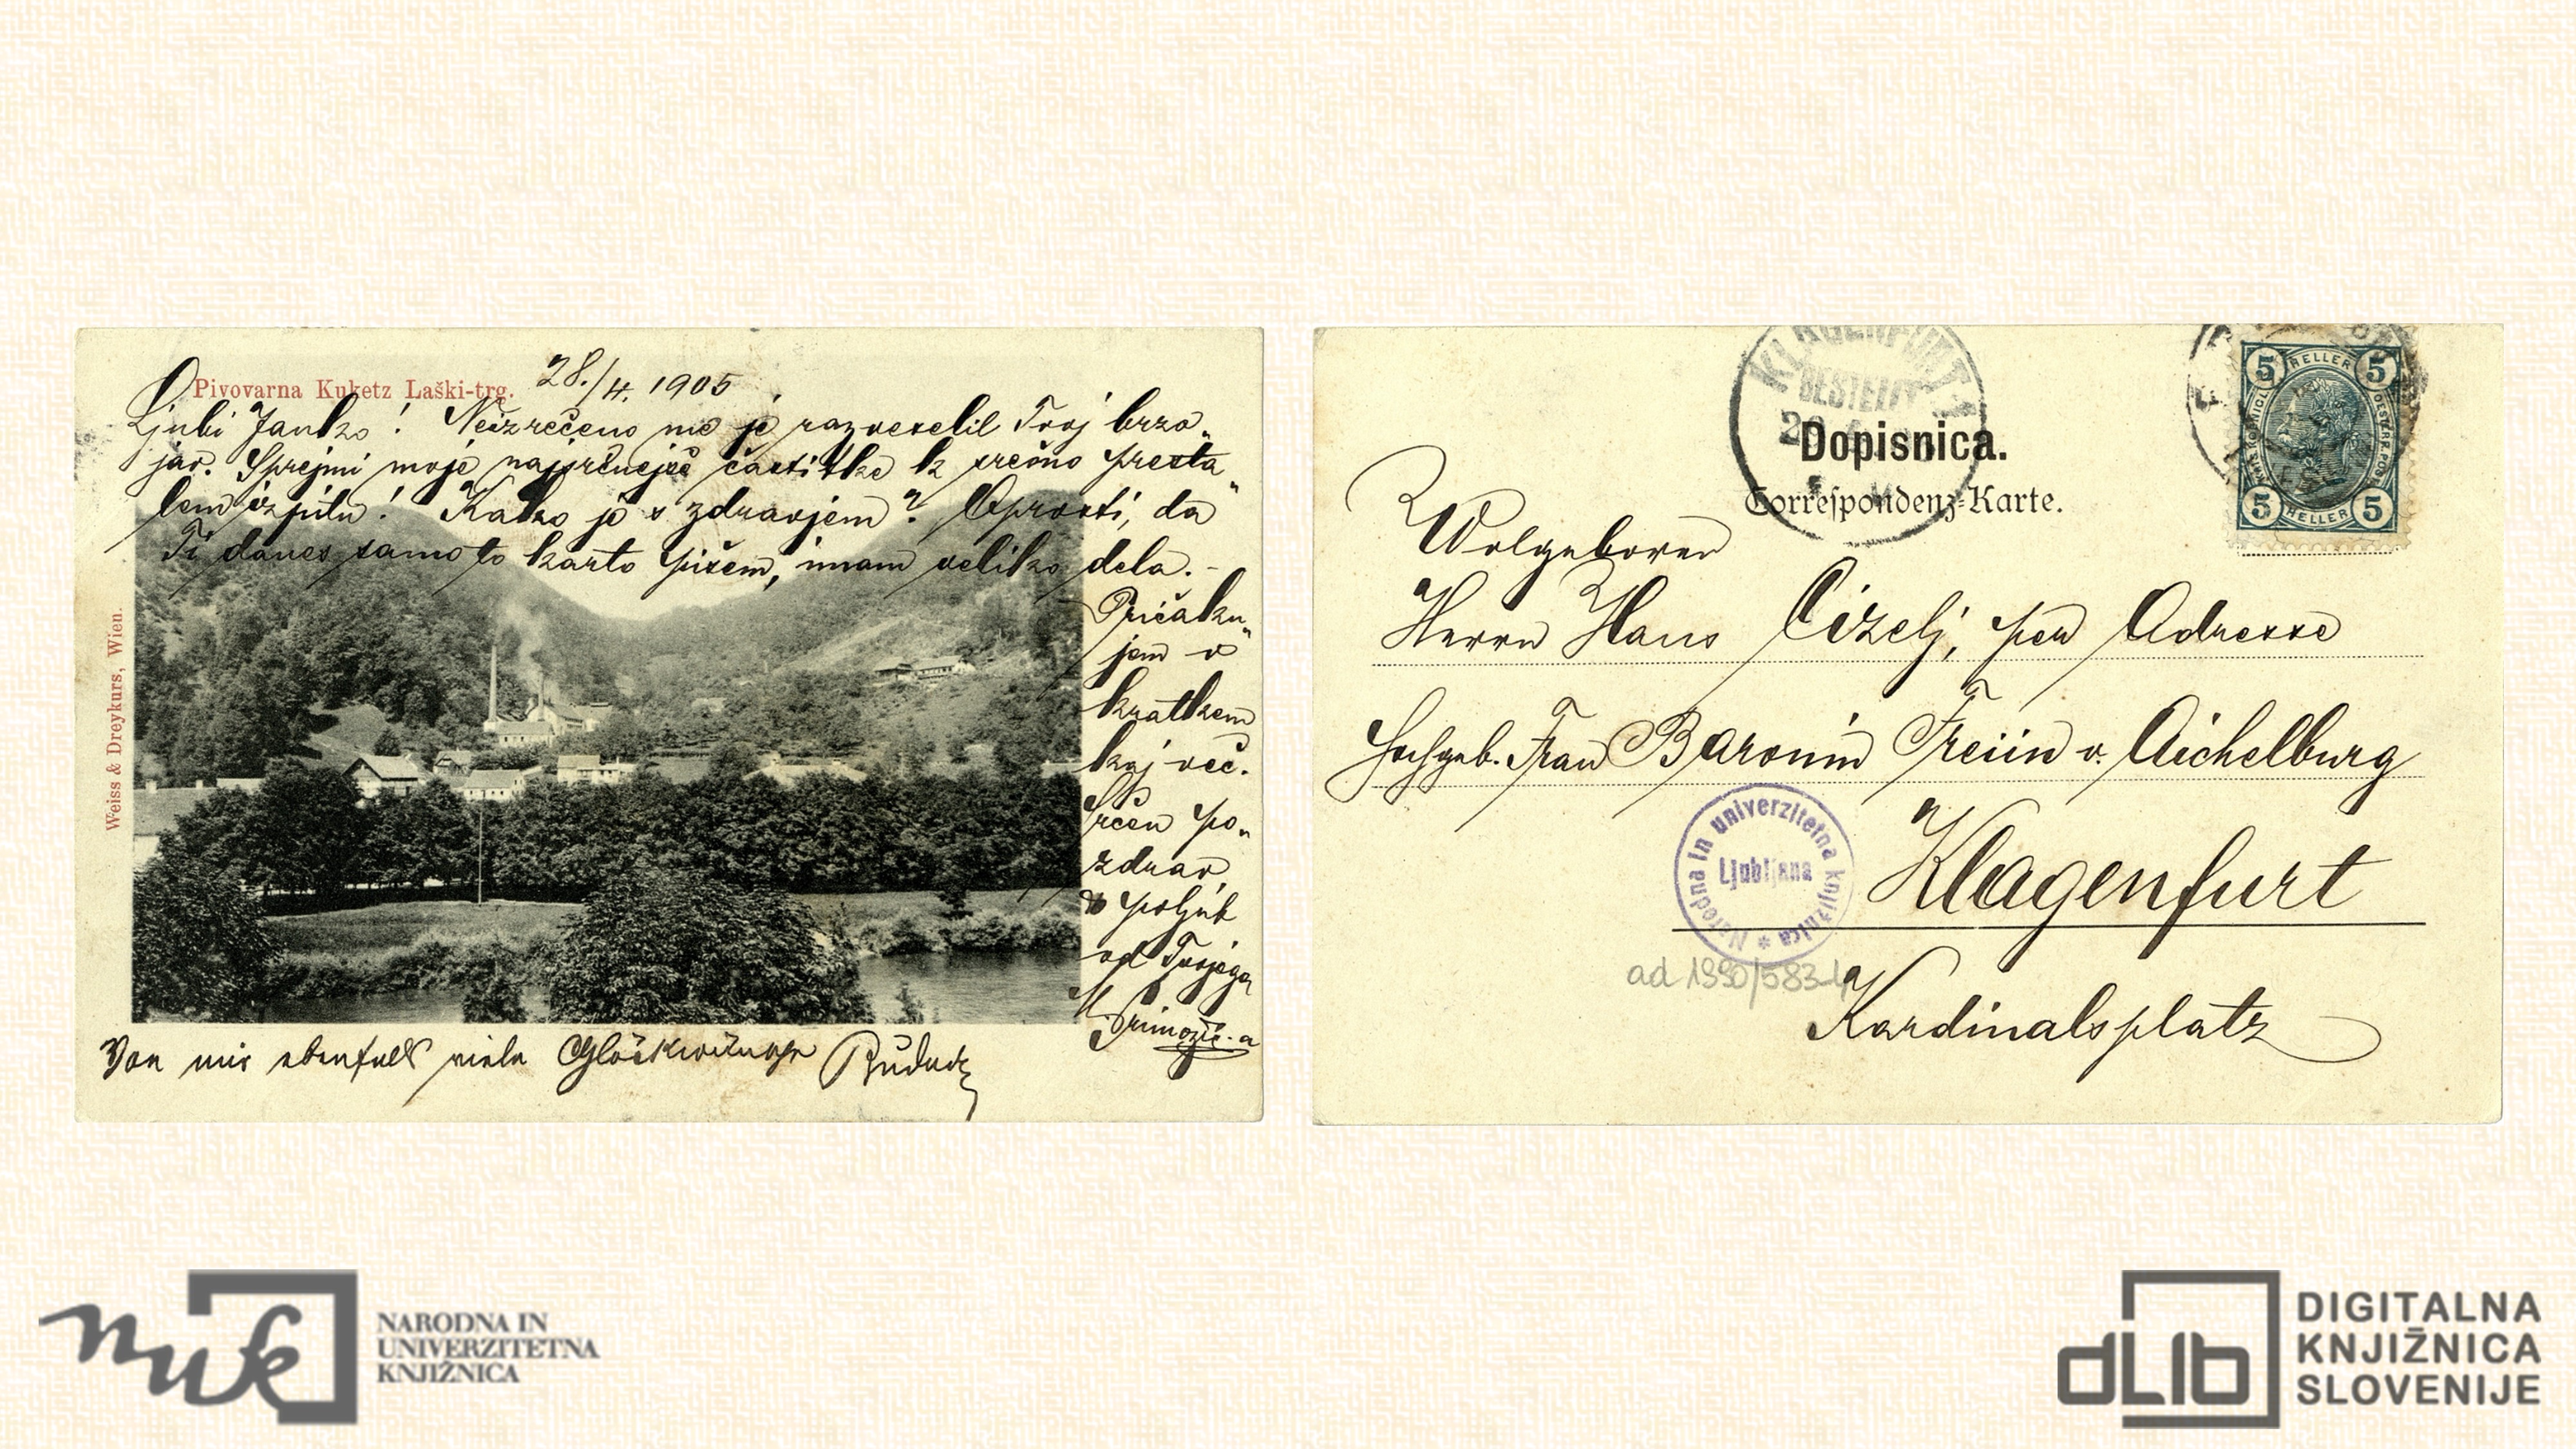 Pivovarna Kuketz Laški-trg.
28./4. 1905
Ljubi Janko! Neizrečeno me je razveselil Tvoj brzo„
jav. Sprejmi moje najsrčnejše častitke k srečno presta„
lem izpitu! Kako je s zdravjem? Oprosti, da
Ti danes samo to karto pišem, imam veliko dela. –
Pričaku„
jem v
kratkem
kaj več.
Srčen po„
zdrav
& poljub
od Tvojega
Von mir ebenfalls viele
Weiss & Dreykurs, Wien.
KLAGENFURT
BESTELLT
Dopisnica.
Correspondenz-Karte.
5 HELLER 5
5 HELLER 5
Wolgeboren
Herrn Hans Cizelj, per Adresse
Hochgeb. Frau Baronin Freiin v. Aichelburg
Klagenfurt
Kardinalsplatz
Narodna in univerzitetna knjižnica *
Ljubljana
ad 1990/583-4
nuk
NARODNA IN
UNIVERZITETNA
KNJIŽNICA
dLIb
DIGITALNA
KNJIŽNICA
SLOVENIJE